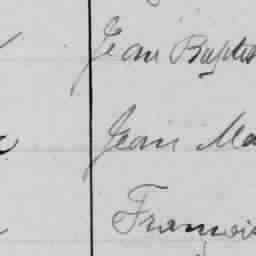 Jean Baptis
Jean Ma
François